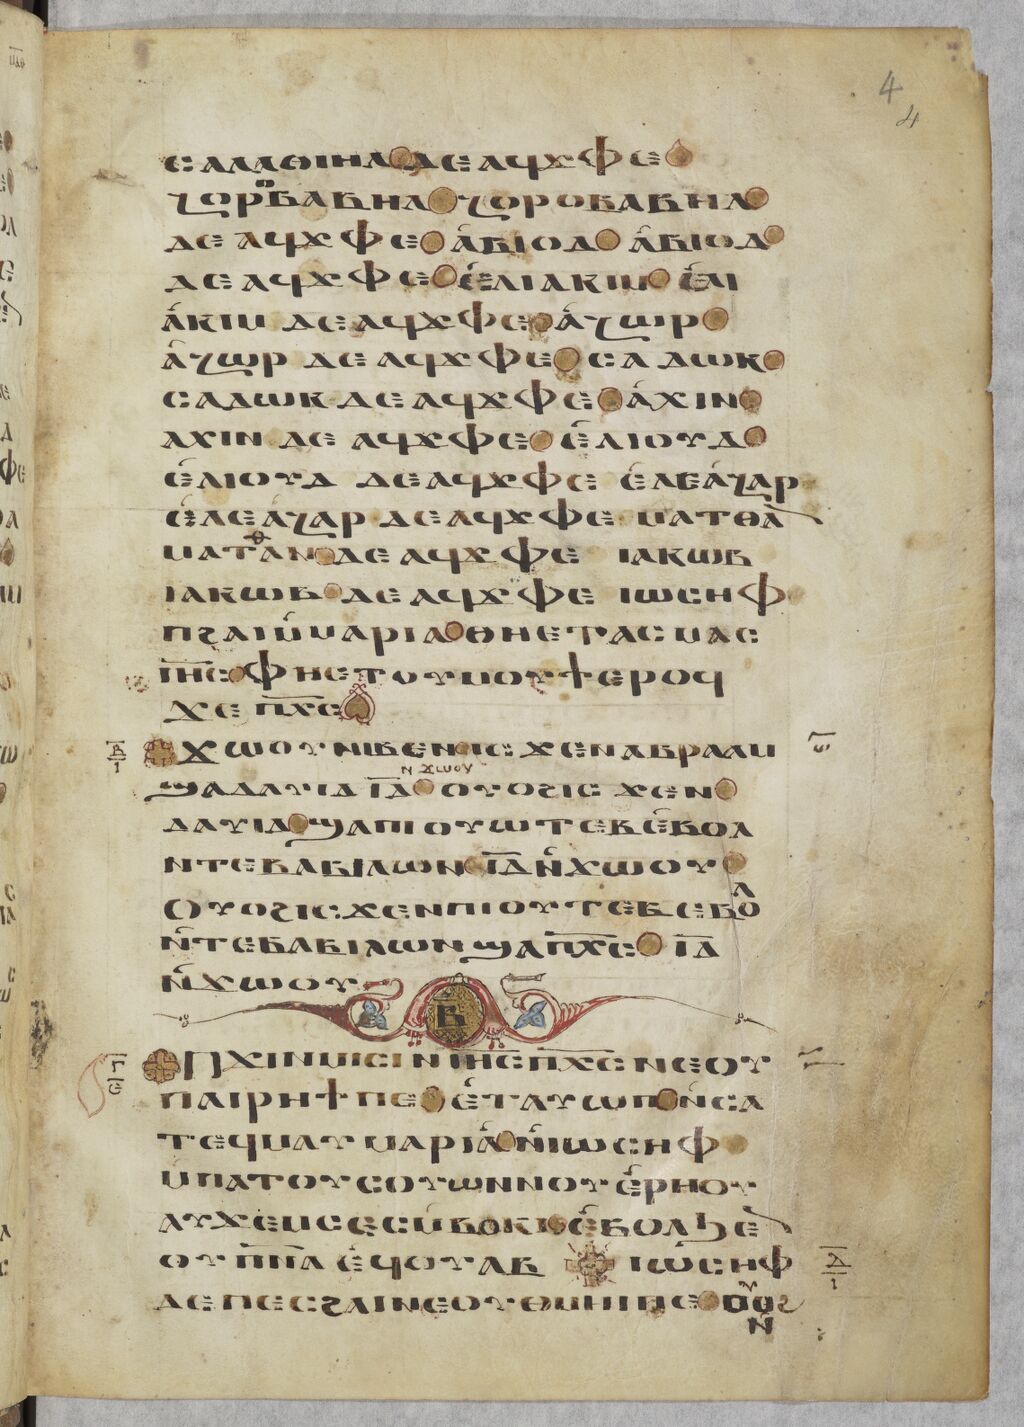 4
4
ⲥⲁⲗⲁⲑⲓⲏⲗ ⲇⲉ ⲁϥϫⲫⲉ
ⲍⲟⲣⲟⲃⲁⲃⲏⲗ ⲍⲟⲣⲟⲃⲁⲃⲏⲗ
ⲇⲉ ⲁϥϫⲫⲉ ⲁ̀ⲃⲓⲟⲩⲇ ⲁ̀ⲃⲓⲟⲩⲇ
ⲇⲉ ⲁϥϫⲫⲉ ⲉ̀ⲗⲓⲁⲕⲓⲙ ⲉ̀ⲗⲓ
ⲁ̀ⲕⲓⲙ ⲇⲉ ⲁϥϫⲫⲉ ⲁ̀ⲍⲱⲣ
ⲁ̀ⲍⲱⲣ ⲇⲉ ⲁϥϫⲫⲉ ⲥⲁⲇⲱⲕ
ⲥⲁⲇⲱⲕ ⲇⲉ ⲁϥϫⲫⲉ ⲁ̀ⲭⲓⲛ
ⲁⲭⲓⲛ ⲇⲉ ⲁϥϫⲫⲉ ⲉ̀ⲗⲓⲟⲩⲇ
ⲉ̀ⲗⲓⲟⲩⲇ ⲇⲉ ⲁϥϫⲫⲉ ⲉ̀ⲗⲉⲁ̀ⲍⲁⲣ
ⲉ̀ⲗⲉⲁ̀ⲍⲁⲣ ⲇⲉ ⲁϥϫⲫⲉ ⲙⲁⲧⲑⲁⲛ
ⲙⲁⲧⲑⲁⲛ ⲇⲉ ⲁϥϫⲫⲉ ⲓⲁⲕⲱⲃ
ⲓⲁⲕⲱⲃ ⲇⲉ ⲁϥϫⲫⲉ ⲓⲱⲥⲏⲫ
ⲡϩⲁⲓ ⲙ̀ⲙⲁⲣⲓⲁ ⲑⲏⲉⲧⲁⲥⲙⲁⲥ
ⲓ̅ⲏ̅ⲥ̅ ⲫⲏⲉⲧⲟⲩⲙⲟⲩϯ ⲉⲣⲟϥ
ϫⲉ ⲡ̅ⲭ̅ⲥ̅
ϫⲱⲟⲩ ⲛⲓⲃⲉⲛ ⲓⲥϫⲉⲛ ⲁⲃⲣⲁⲁⲙ
ⲛϫⲱⲟⲩ
ϣⲁ ⲇⲁⲩⲓⲇ ⲓ̅ⲇ̅ ⲟⲩⲟϩ ⲓⲥϫⲉⲛ
ⲇⲁⲩⲓⲇ ϣⲁ ⲡⲓⲟⲩⲱⲧⲉⲃ ⲉ̀ⲃⲟⲗ
ⲛⲧⲉ ⲃⲁⲃⲓⲗⲱⲛ ⲓ̅ⲇ̅ ⲛ̀ϫⲱⲟⲩ
ⲟⲩⲟϩ ⲓⲥϫⲉⲛ ⲡⲓⲟⲩⲧⲉⲃ ⲉⲃⲟⲗ
ⲛ̀ⲧⲉ ⲃⲁⲃⲓⲗⲱⲛ ϣⲁ ⲡ̅ⲭ̅ⲥ̅ ⲓ̅ⲇ̅
ⲛ̀ϫⲱⲟⲩ
ⲃ
ⲡϫⲓⲛⲙⲓⲥⲓ ⲛⲓ̅ⲏ̅ⲥ̅ ⲡ̅ⲭ̅ⲥ̅ ⲛⲉ ⲟⲩ
ⲡⲁⲓⲣⲏϯ ⲡⲉ ⲉ̀ⲧⲁⲩⲱⲡ ⲛ̀ⲥⲁ
ⲧⲉϥⲙⲁⲩ ⲙⲁⲣⲓⲁ̀ ⲛ̀ⲓⲱⲥⲏⲫ
ⲙ̀ⲡⲁⲧⲟⲩⲥⲟⲩⲱⲛ ⲛⲟⲩⲉ̀ⲣⲏⲟⲩ
ⲁⲩϫⲉⲙⲥ ⲉⲥⲙ̀ⲃⲟⲕⲓ ⲉ̀ⲃⲟⲗ ϧⲉⲛ
ⲟⲩⲡ̅ⲛ̅ⲁ̅ ⲉ̀ϥⲟⲩⲁⲃ ⲓⲱ̀ⲥⲏⲫ
ⲇⲉ ⲡⲉⲥϩⲁⲓ ⲛⲉ ⲟⲩⲑⲙⲏⲓ ⲡⲉ ⲟⲩⲟϩ